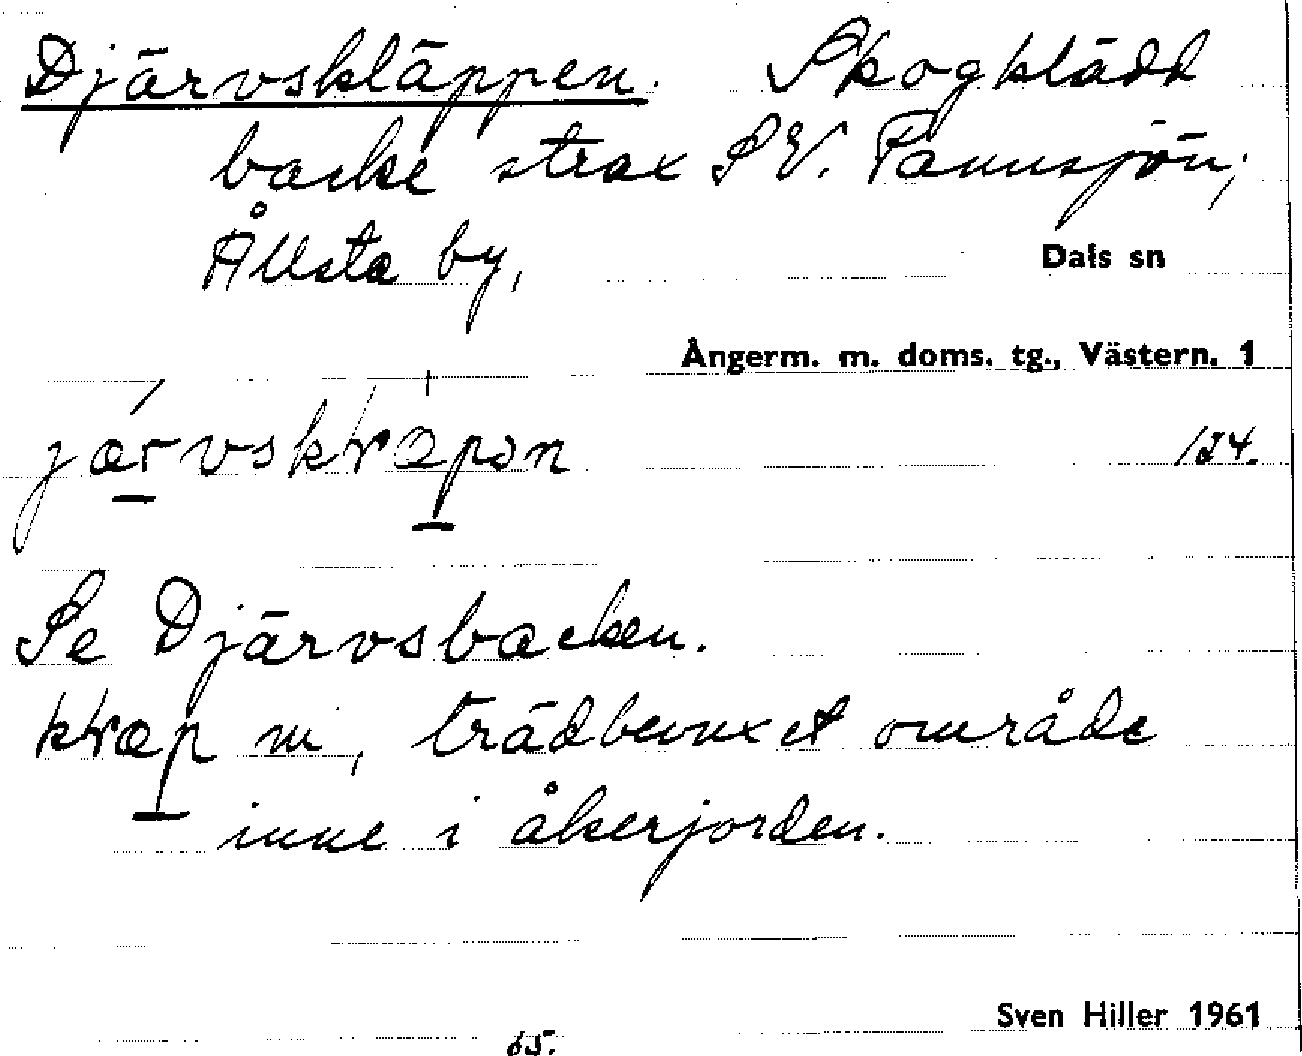 Djärvskläppen. Skogklädd
backe strax SV. Pannsjön,
Ållsta by,
Dals sn
Ångerm. m. doms. tg., Västern. 1
järvskræpən
124.
Se Djärvsbacken.
kræp m, trädbevuxet område
inne i åkerjorden.
Sven Hiller 1961
65.